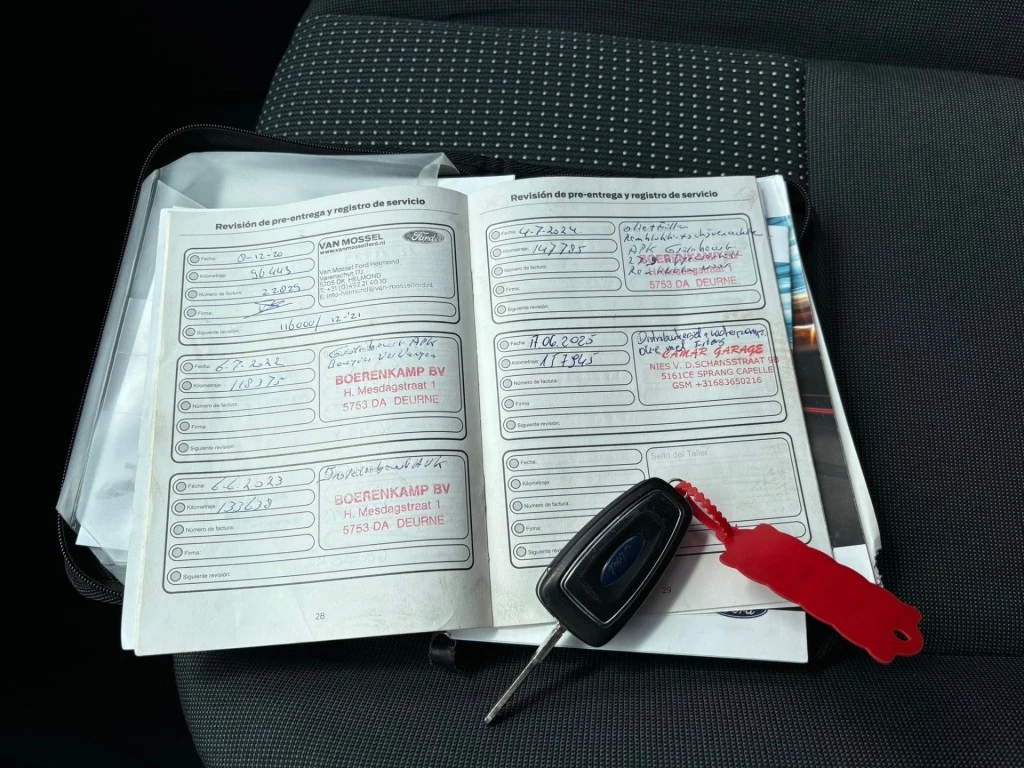 Revisión de pre-entrega y registro de servicio
Fecha: 8-12-20
Kilometraje: 96443
Número de factura: 22029
Firma:
Siguiente revisión: 116000/ 12-'21
VAN MOSSEL
www.vanmosselford.nl
Ford
Van Mossel Ford Helmond
Varenschut 17J
5705 DK HELMOND
T: +31 (0)492 21 40 10
E: info-helmond@van-mosselford.nl
Fecha: 6-7-2022
Kilometraje: 118375
Número de factura:
Firma:
Siguiente revisión:
Grote beurt APK
BOERENKAMP BV
H. Mesdagstraat 1
5753 DA DEURNE
Fecha: 6-6-2023
Kilometraje: 133638
Número de factura:
Firma:
Siguiente revisión:
BOERENKAMP BV
H. Mesdagstraat 1
5753 DA DEURNE
28
Revisión de pre-entrega y registro de servicio
Fecha: 4-7-2024
Kilometraje: 147785
Número de factura:
Firma:
Siguiente revisión:
APK
BOERENKAMP BV
H. Mesdagstraat 1
5753 DA DEURNE
Fecha: 17.06.2025
Kilometraje: 157945
Número de factura:
Firma:
Siguiente revisión:
CAMAR GARAGE
NIES.V. D.SCHANSSTRAAT 98
5161CE SPRANG CAPELLE
GSM +31683650216
Fecha:
Kilometraje:
Número de factura:
Firma:
Siguiente
Sello del Taller
29
Ford
Ford